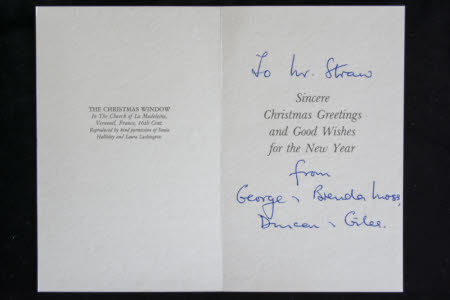 THE CHRISTMAS WINDOW
In The Church of La Madeleine,
Verneuil, France, 16th Cent.
Reproduced by kind permission of Sonia
Halliday and Laura Lushington
To Mr. Straw
Sincere
Christmas Greetings
and Good Wishes
for the New Year
from
George & Brenda Moss,
Duncan & Giles.